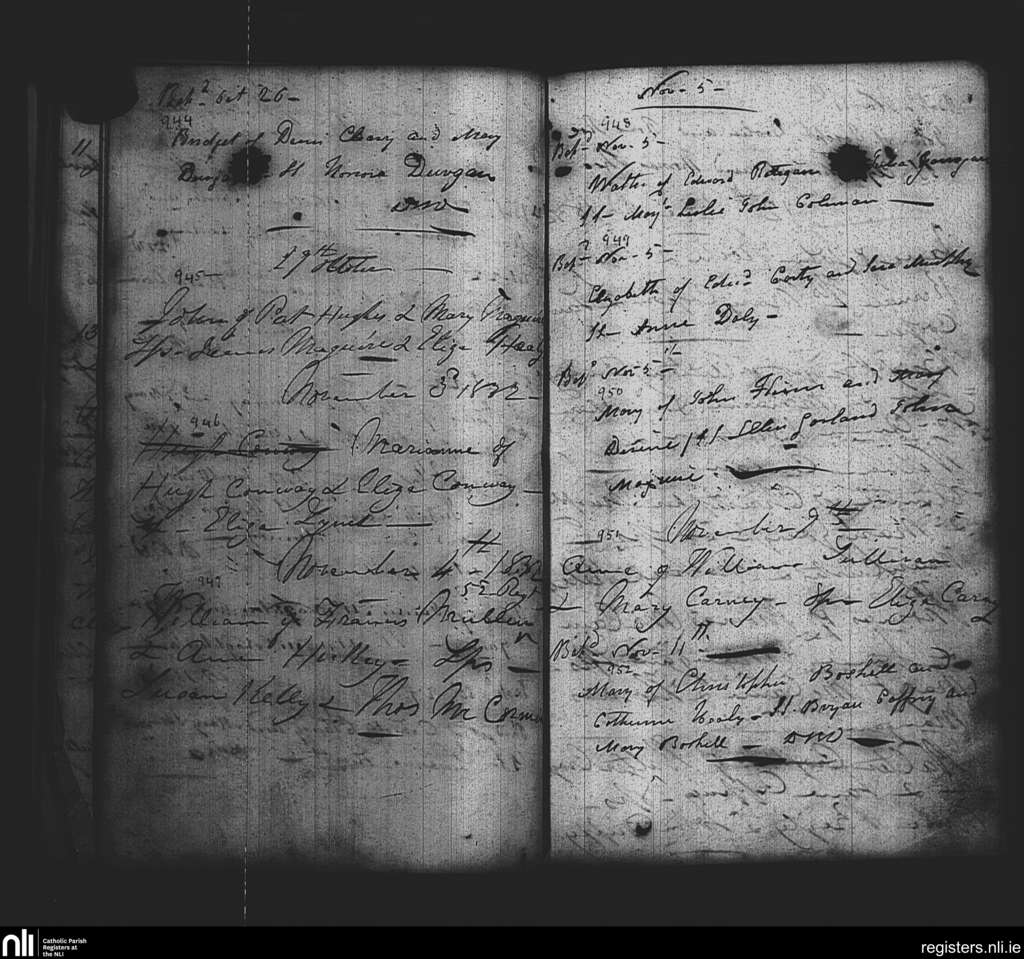 Oct 26 -
944
Bridget of Denis Cleary and Mary
Ss Honora Durgan
DW
29th October
945
John of Pat Hughes & Mary Maguire
Sps - James Maguire & Eliza Healy
November 3d 1832 -
946
Hugh Conway Marianne of
Hugh Conway & Eliza Conway -
Sp - Eliza Lynch
November 4th - 1832
947
52 Regt
William of Francis Mullen
& Anne - Sps -
Susan Kelly & Thos Mc
Nov - 5 -
948
Bapd Nov - 5 -
of Edward and
Ss - Mary John Coleman
949
Bapd - Nov - 5 -
Elizabeth of Edwd and
Ss Anne Daly -
Bapd Nov 5 -
950
Mary of John and Mary
Ss Ellen Gorland John
Maguire -
951
November 9th
Anne of William Sullivan
& Mary Carney - Sps Eliza Carney
&
Bapd Nov - 11th
952
Mary of Christopher Boshell and
Catherine Healy - Ss Bryan Caffrey and
Mary Boshell - DW
nli
Catholic Parish
Registers at
the NLI
registers.nli.ie